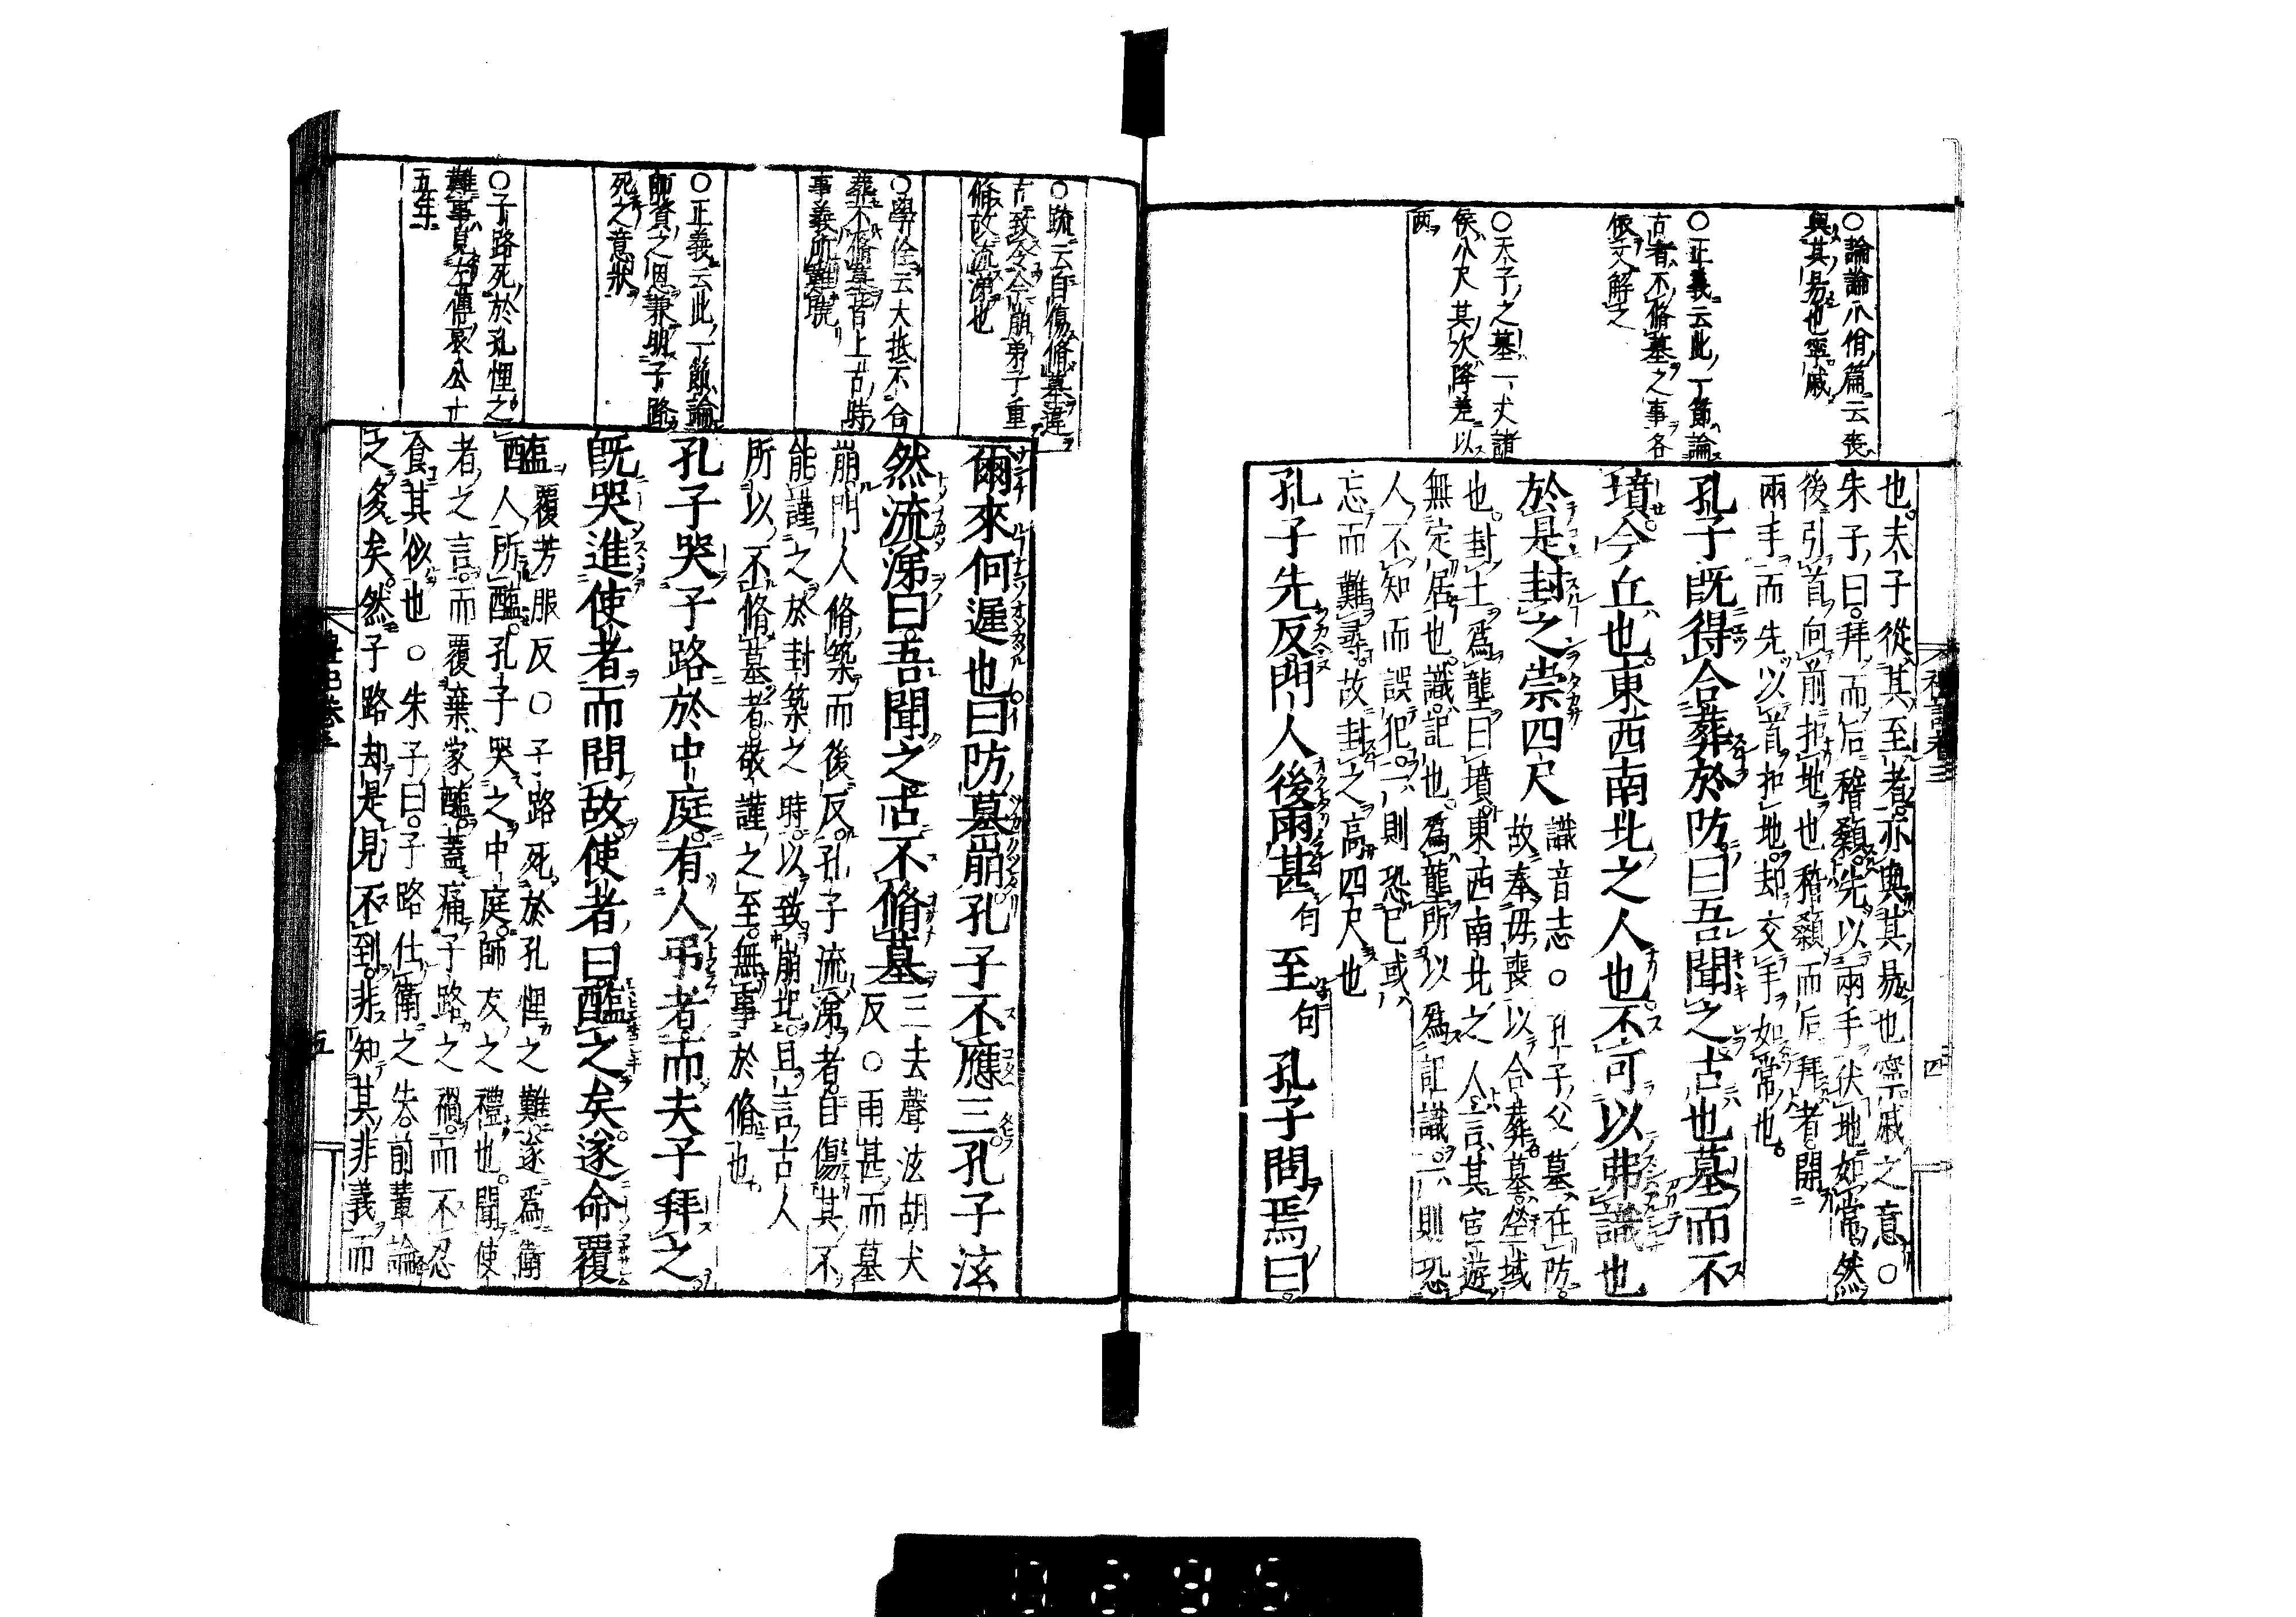 ○論語八佾篇云喪
與其易也寧戚
○正義云此一節論
古者不脩墓之事各
依文解之
○天子之墓一丈諸
侯八尺其次降差以
兩
也夫子從其至者亦與其易也寧戚之意○
朱子曰拜而后稽顙先以兩手伏地如常然
後引首向前扣地也稽顙而后拜者開
兩手而先以首扣地却交手如常也
孔子既得合葬於防曰吾聞之古也墓而不
墳今丘也東西南北之人也不可以弗識也
於是封之崇四尺
識音志○孔子父墓在防
故奉母喪以合葬墓塋域
也封土為壟曰墳東西南北之人言其宦遊
無定居也識記也為壟所以為記識一則恐
人不知而誤犯一則恐己或
忘而難尋故封之高四尺也
孔子先反門人後雨甚句至句孔子問焉曰
禮記卷三
四
○疏云自傷脩墓違
古致令今崩弟子重
脩故流涕也
○學佺云大抵不合
葬不脩墓皆上古時
事義所難曉
○正義云此一節論
師資之恩兼明子路
死之意狀
○子路死於孔悝之
難事見左傳哀公十
五年
爾來何遲也曰防墓崩孔子不應三孔子泫
然流涕曰吾聞之古不脩墓
三去聲泫胡犬
反○雨甚而墓
崩門人脩築而後反孔子流涕者自傷其不
能謹之於封築之時以致崩圮且言古人
所以不脩墓者敬謹之至無事於脩也
孔子哭子路於中庭有人弔者而夫子拜之
既哭進使者而問故使者曰醢之矣遂命覆
醢
覆芳服反○子路死於孔悝之難遂為衛
人所醢孔子哭之中庭師友之禮也聞使
者之言而覆棄家醢蓋痛子路之禍而不忍
食其似也○朱子曰子路仕衛之失前輩論
之多矣然子路却是見不到非知其非義而
五